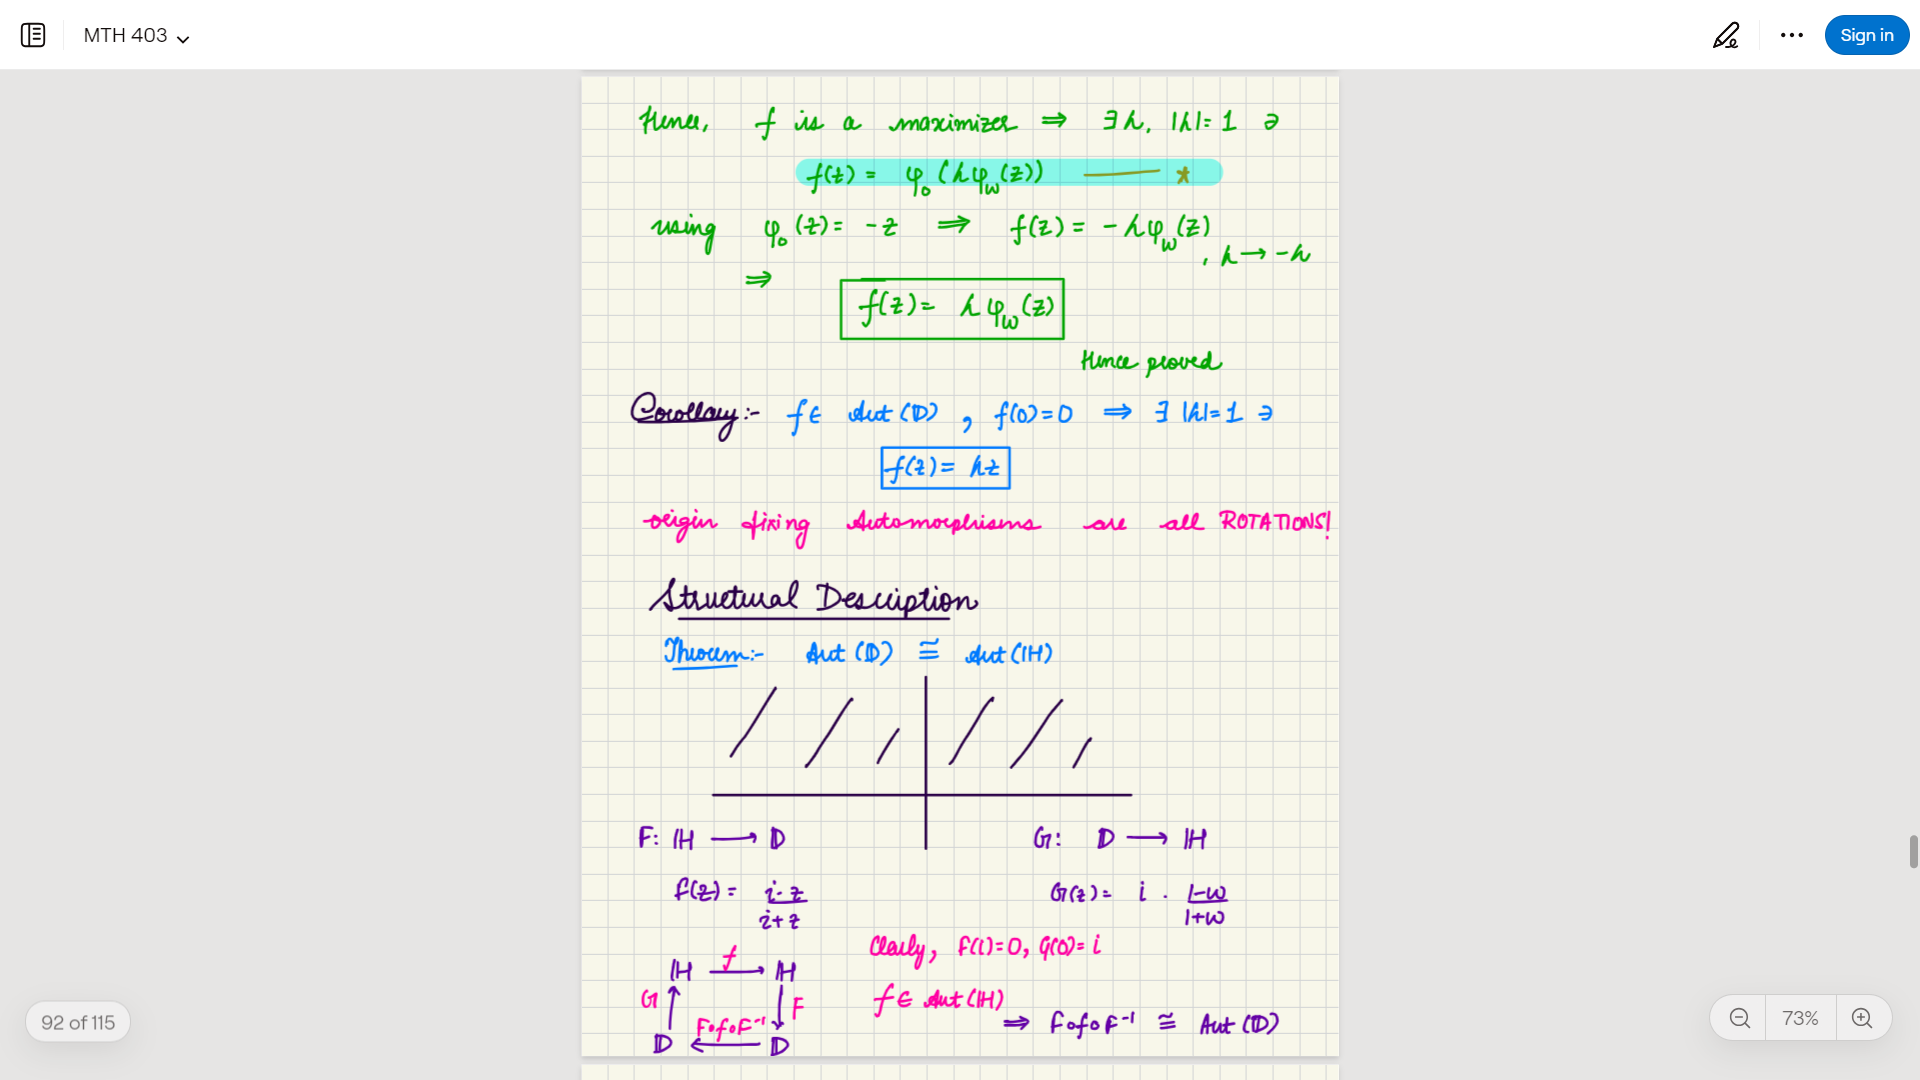 MTH 403
Sign in
Hence, f is a maximizer ⇒ ∃ λ, |λ| = 1 ∋
f(z) = φ₀ (λ φ_w (z)) ——— *
using φ₀ (z) = -z ⇒ f(z) = -λ φ_w (z)
, λ → -λ
⇒
f(z) = λ φ_w (z)
Hence proved
Corollary:- f ∈ Aut (𝔻) , f(0) = 0 ⇒ ∃ |λ| = 1 ∋
f(z) = λz
origin fixing Automorphisms are all ROTATIONS!
Structural Description
Theorem:- Aut (𝔻) ≅ Aut (ℍ)
F: ℍ ⟶ 𝔻 G: 𝔻 ⟶ ℍ
F(z) = (i - z)/(i + z) G(z) = i · (1-w)/(1+w)
Clearly, F(i) = 0, G(0) = i
ℍ —f→ ℍ
G ↑ ↓ F
f ∈ Aut (ℍ)
⇒ F∘f∘F⁻¹ ≅ Aut (𝔻)
F∘f∘F⁻¹
𝔻 ← 𝔻
92 of 115
73%